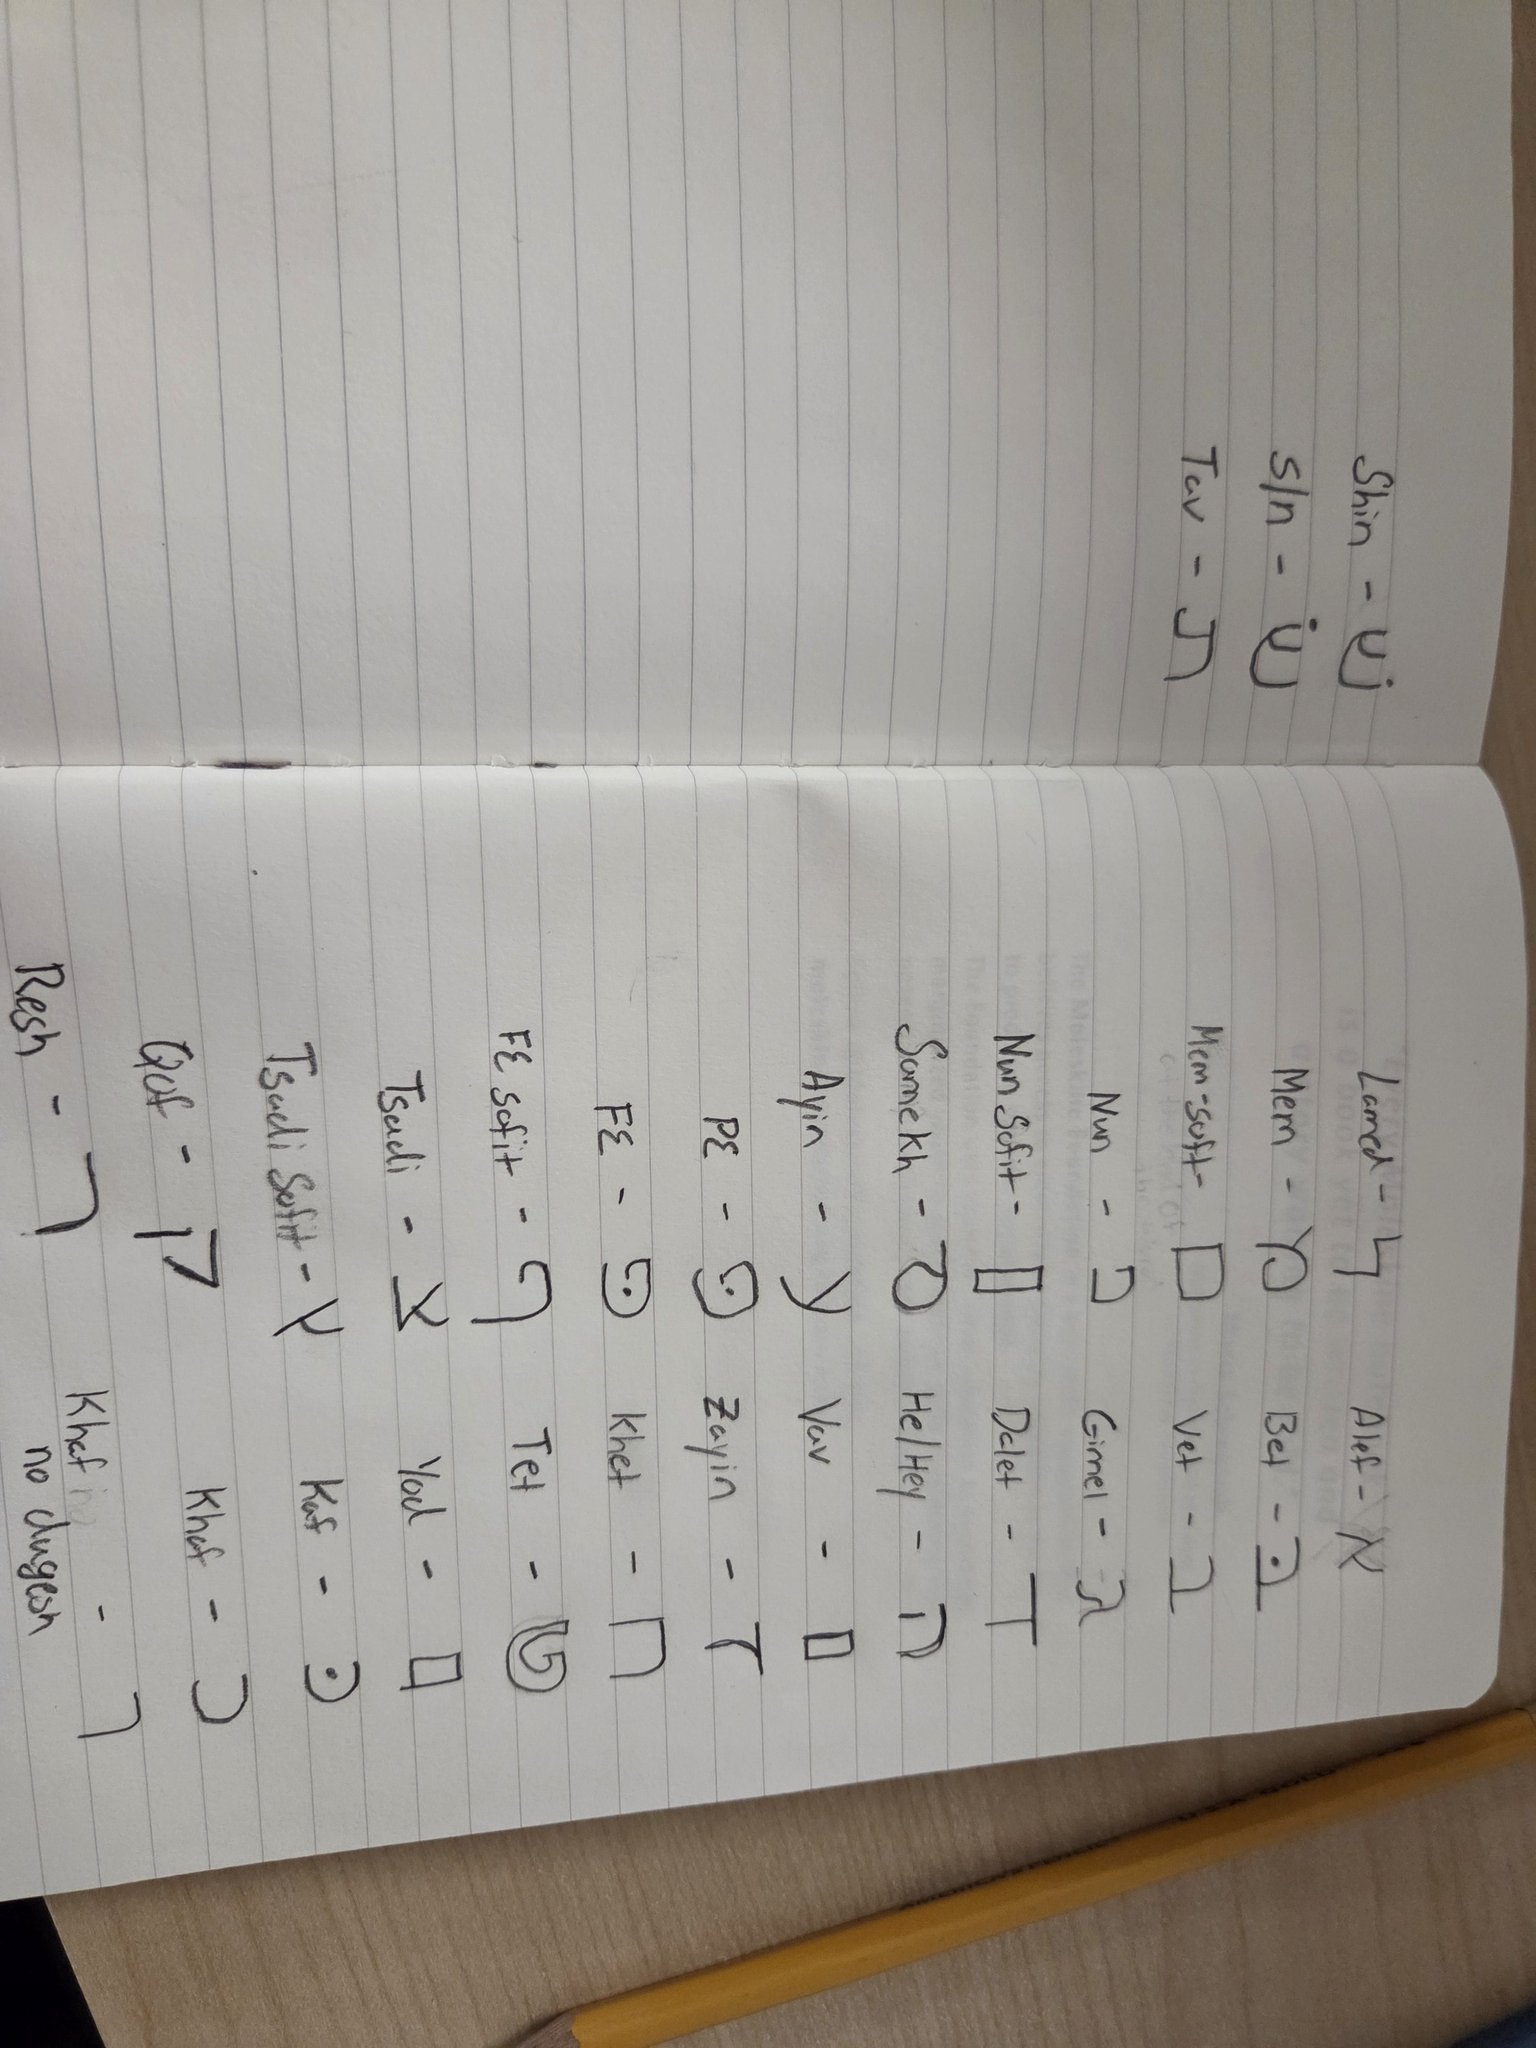 Shin - שׁ
Sin - שׂ
Tav - ת
Lamed - ל Alef - א
Mem - מ Bet - בּ
Mem-sofit- ם Vet - ב
Nun - נ Gimel - ג
Nun Sofit - ▯ Dalet - ד
Samekh - ס He/Hey - ה
Ayin - ע Vav - ▯
PE - פּ Zayin - ז
FE - פּ Khet - ח
FE sofit - ף Tet - ט
Tsadi - צ Yod - ▯
Tsadi Sofit - ץ Kaf - כּ
Qof - ק Khaf - כ
Resh - ר Khaf - ך
no dagesh